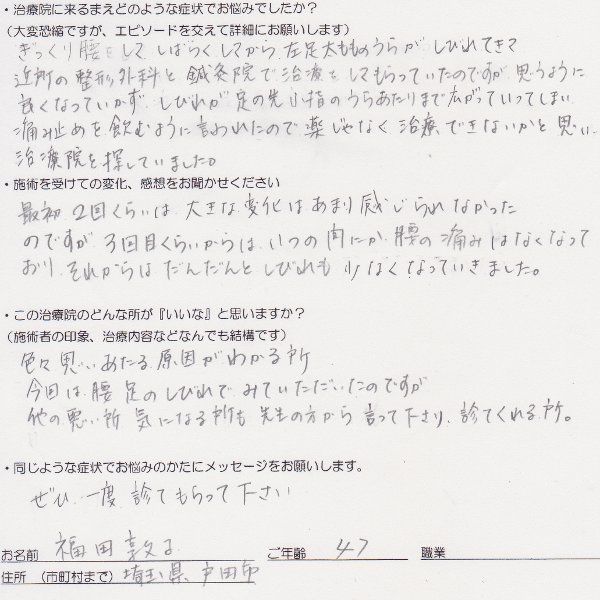 ・治療院に来るまえどのような症状でお悩みでしたか？
(大変恐縮ですが、エピソードを交えて詳細にお願いします)
ぎっくり腰をして しばらくしてから 左足太もものうらが しびれてきて
近所の整形外科と 鍼灸院で治療をしてもらっていたのですが 思うように
良くなっていかず しびれが足の先 小指のうらあたりまで広がっていってしまい
痛み止めを飲むように言われたので 薬じゃなく 治療できないかと思い
治療院を探していました。
・施術を受けての変化、感想をお聞かせください
最初 2回くらいは 大きな変化はあまり感じられなかった
のですが 3回目くらいからは いつの間にか 腰の痛みはなくなって
おり、それからはだんだんとしびれも 少なくなっていきました。
・この治療院のどんな所が『いいな』と思いますか？
(施術者の印象、治療内容などなんでも結構です)
色々思いあたる原因がわかる所
今回は 腰 足のしびれで みていただいたのですが
他の悪い所 気になる所も 先生の方から 言って下さり、診てくれる所。
・同じような症状でお悩みのかたにメッセージをお願いします。
ぜひ 一度 診てもらって下さい
お名前 福田 敦子 ご年齢 47 職業
住所 (市町村まで) 埼玉県 戸田市